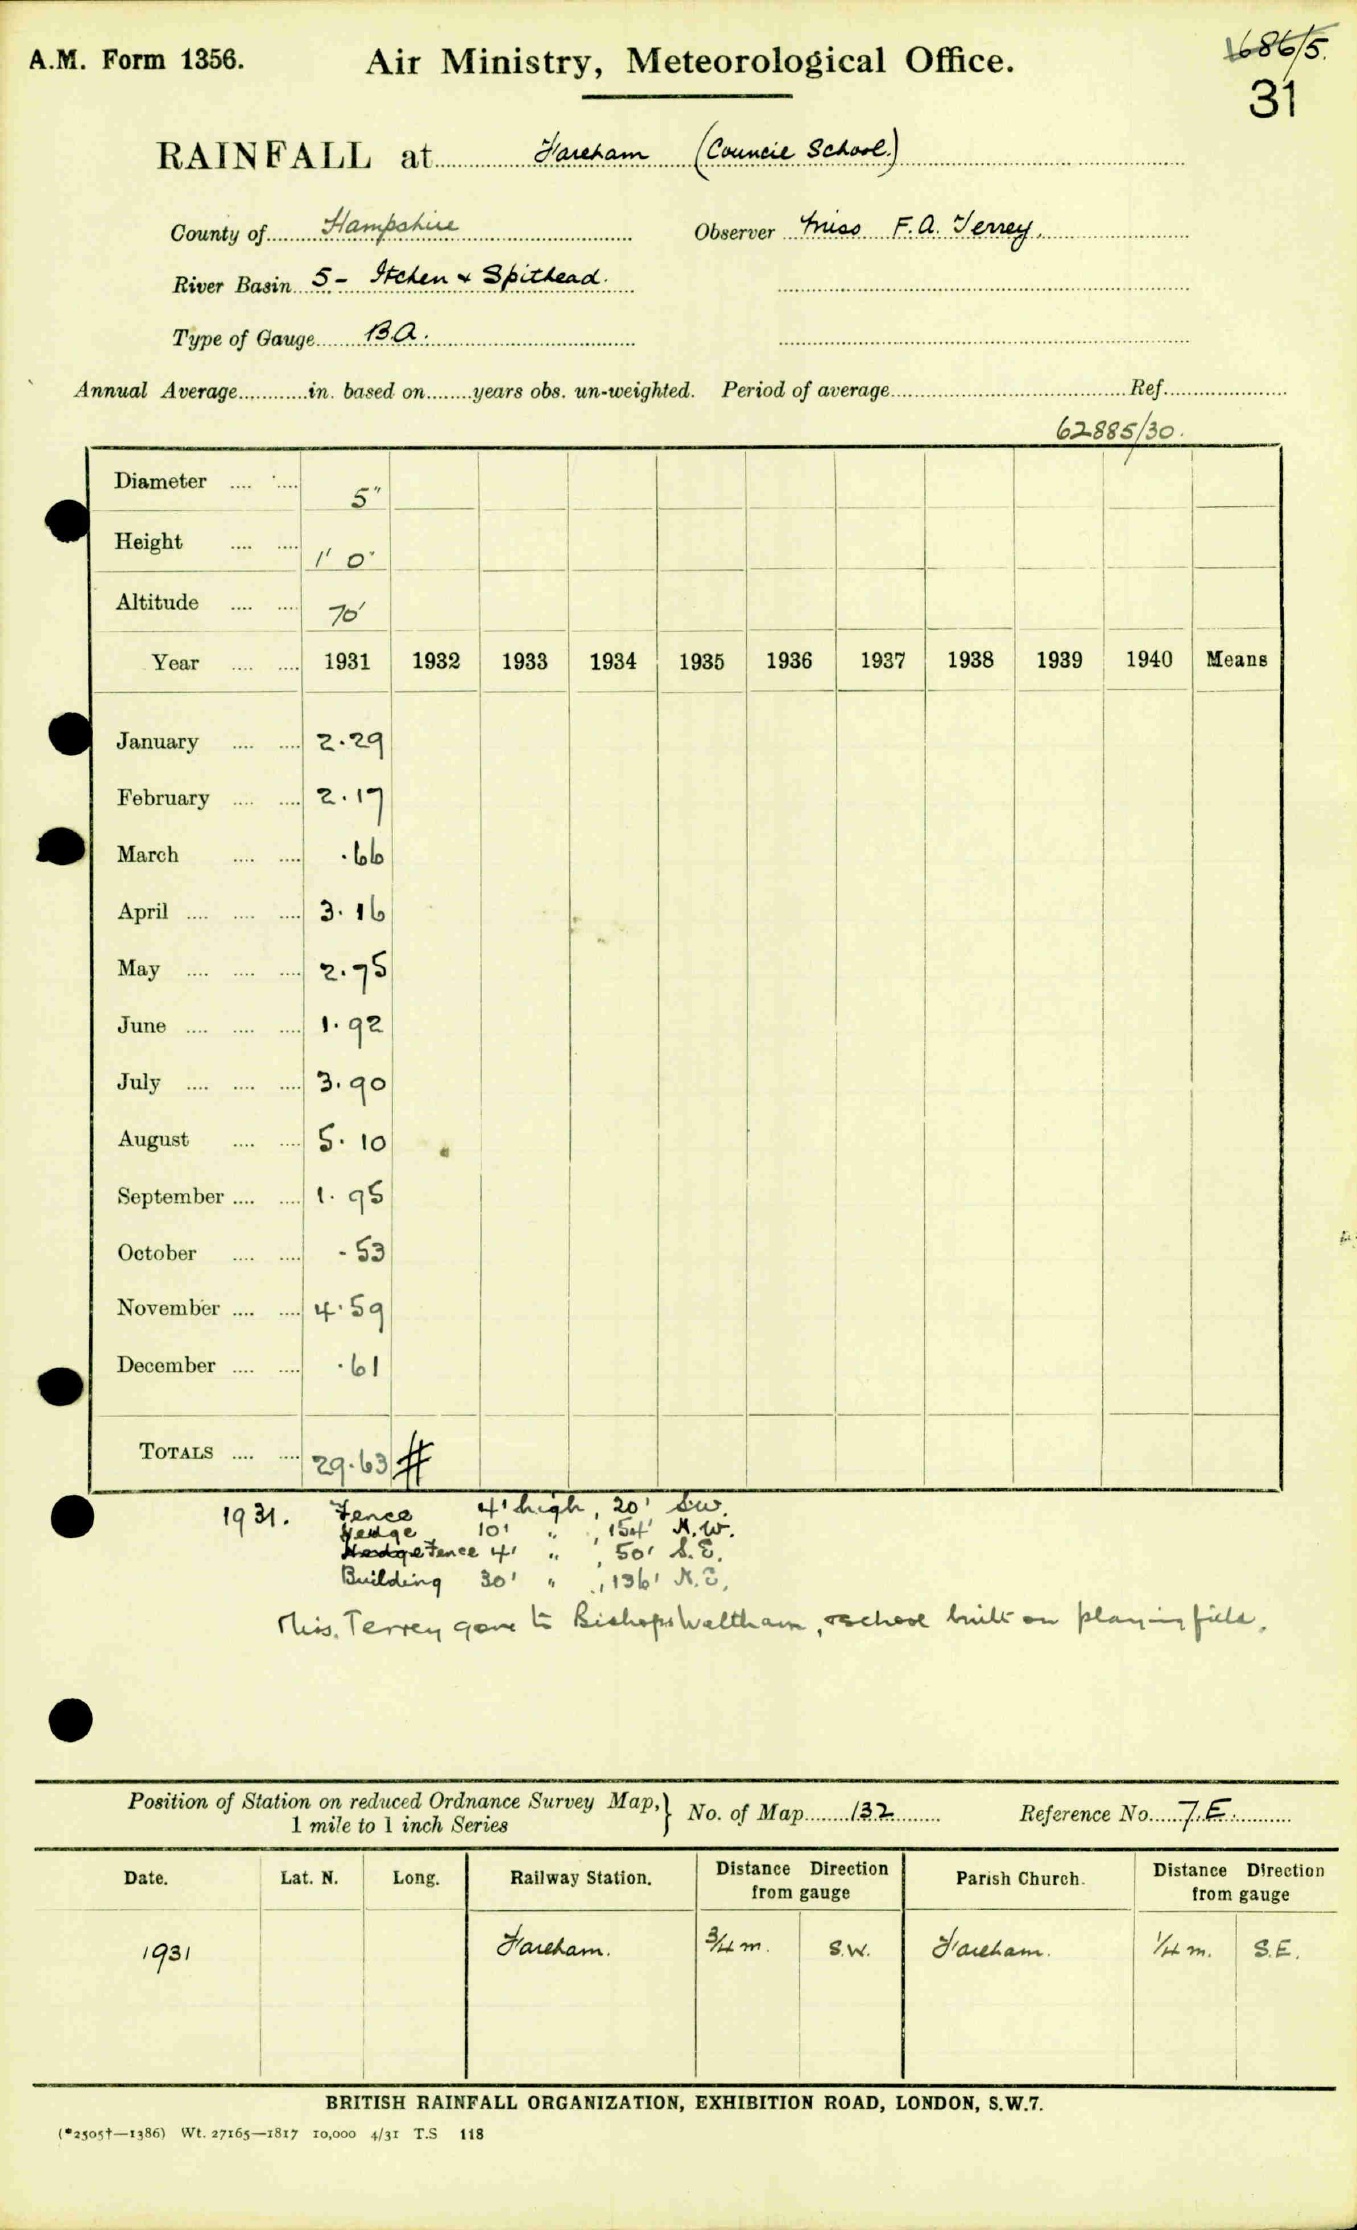 A.M. Form 1356. Air Ministry, Meteorological Office. 1686/5.
31
RAINFALL at Fareham (Council School.)
County of Hampshire Observer Miss F.A. Terrey.
River Basin 5 - Itchen & Spithead.
Type of Gauge B.A.
Annual Average............in. based on........years obs. un-weighted. Period of average................Ref................
62885/30.
Diameter .... .... 5"
Height .... .... 1' 0"
Altitude .... .... 70'
Year .... .... 1931 1932 1933 1934 1935 1936 1937 1938 1939 1940 Means
January .... .... 2.29
February .... .... 2.17
March .... .... .66
April .... .... .... 3.16
May .... .... .... 2.75
June .... .... .... 1.92
July .... .... .... 3.90
August .... .... 5.10
September .... .... 1.95
October .... .... .53
November .... .... 4.59
December .... .... .61
TOTALS .... .... 29.63 #
1931. Fence 4' high, 20' S.W.
Hedge 10' " , 154' N.W.
Hedge Fence 4' " , 50' S.E.
Building 30' " , 136' N.E.
Miss. Terrey gone to Bishops Waltham, school built on playing field.
Position of Station on reduced Ordnance Survey Map, } No. of Map 132 Reference No. 7.E.
1 mile to 1 inch Series
Date. Lat. N. Long. Railway Station. Distance Direction from gauge Parish Church. Distance Direction from gauge
1931 Fareham. 3/4 m. S.W. Fareham. 1/4 m. S.E.
BRITISH RAINFALL ORGANIZATION, EXHIBITION ROAD, LONDON, S.W.7.
(*2505†—1386) Wt. 27165—1817 10,000 4/31 T.S 118